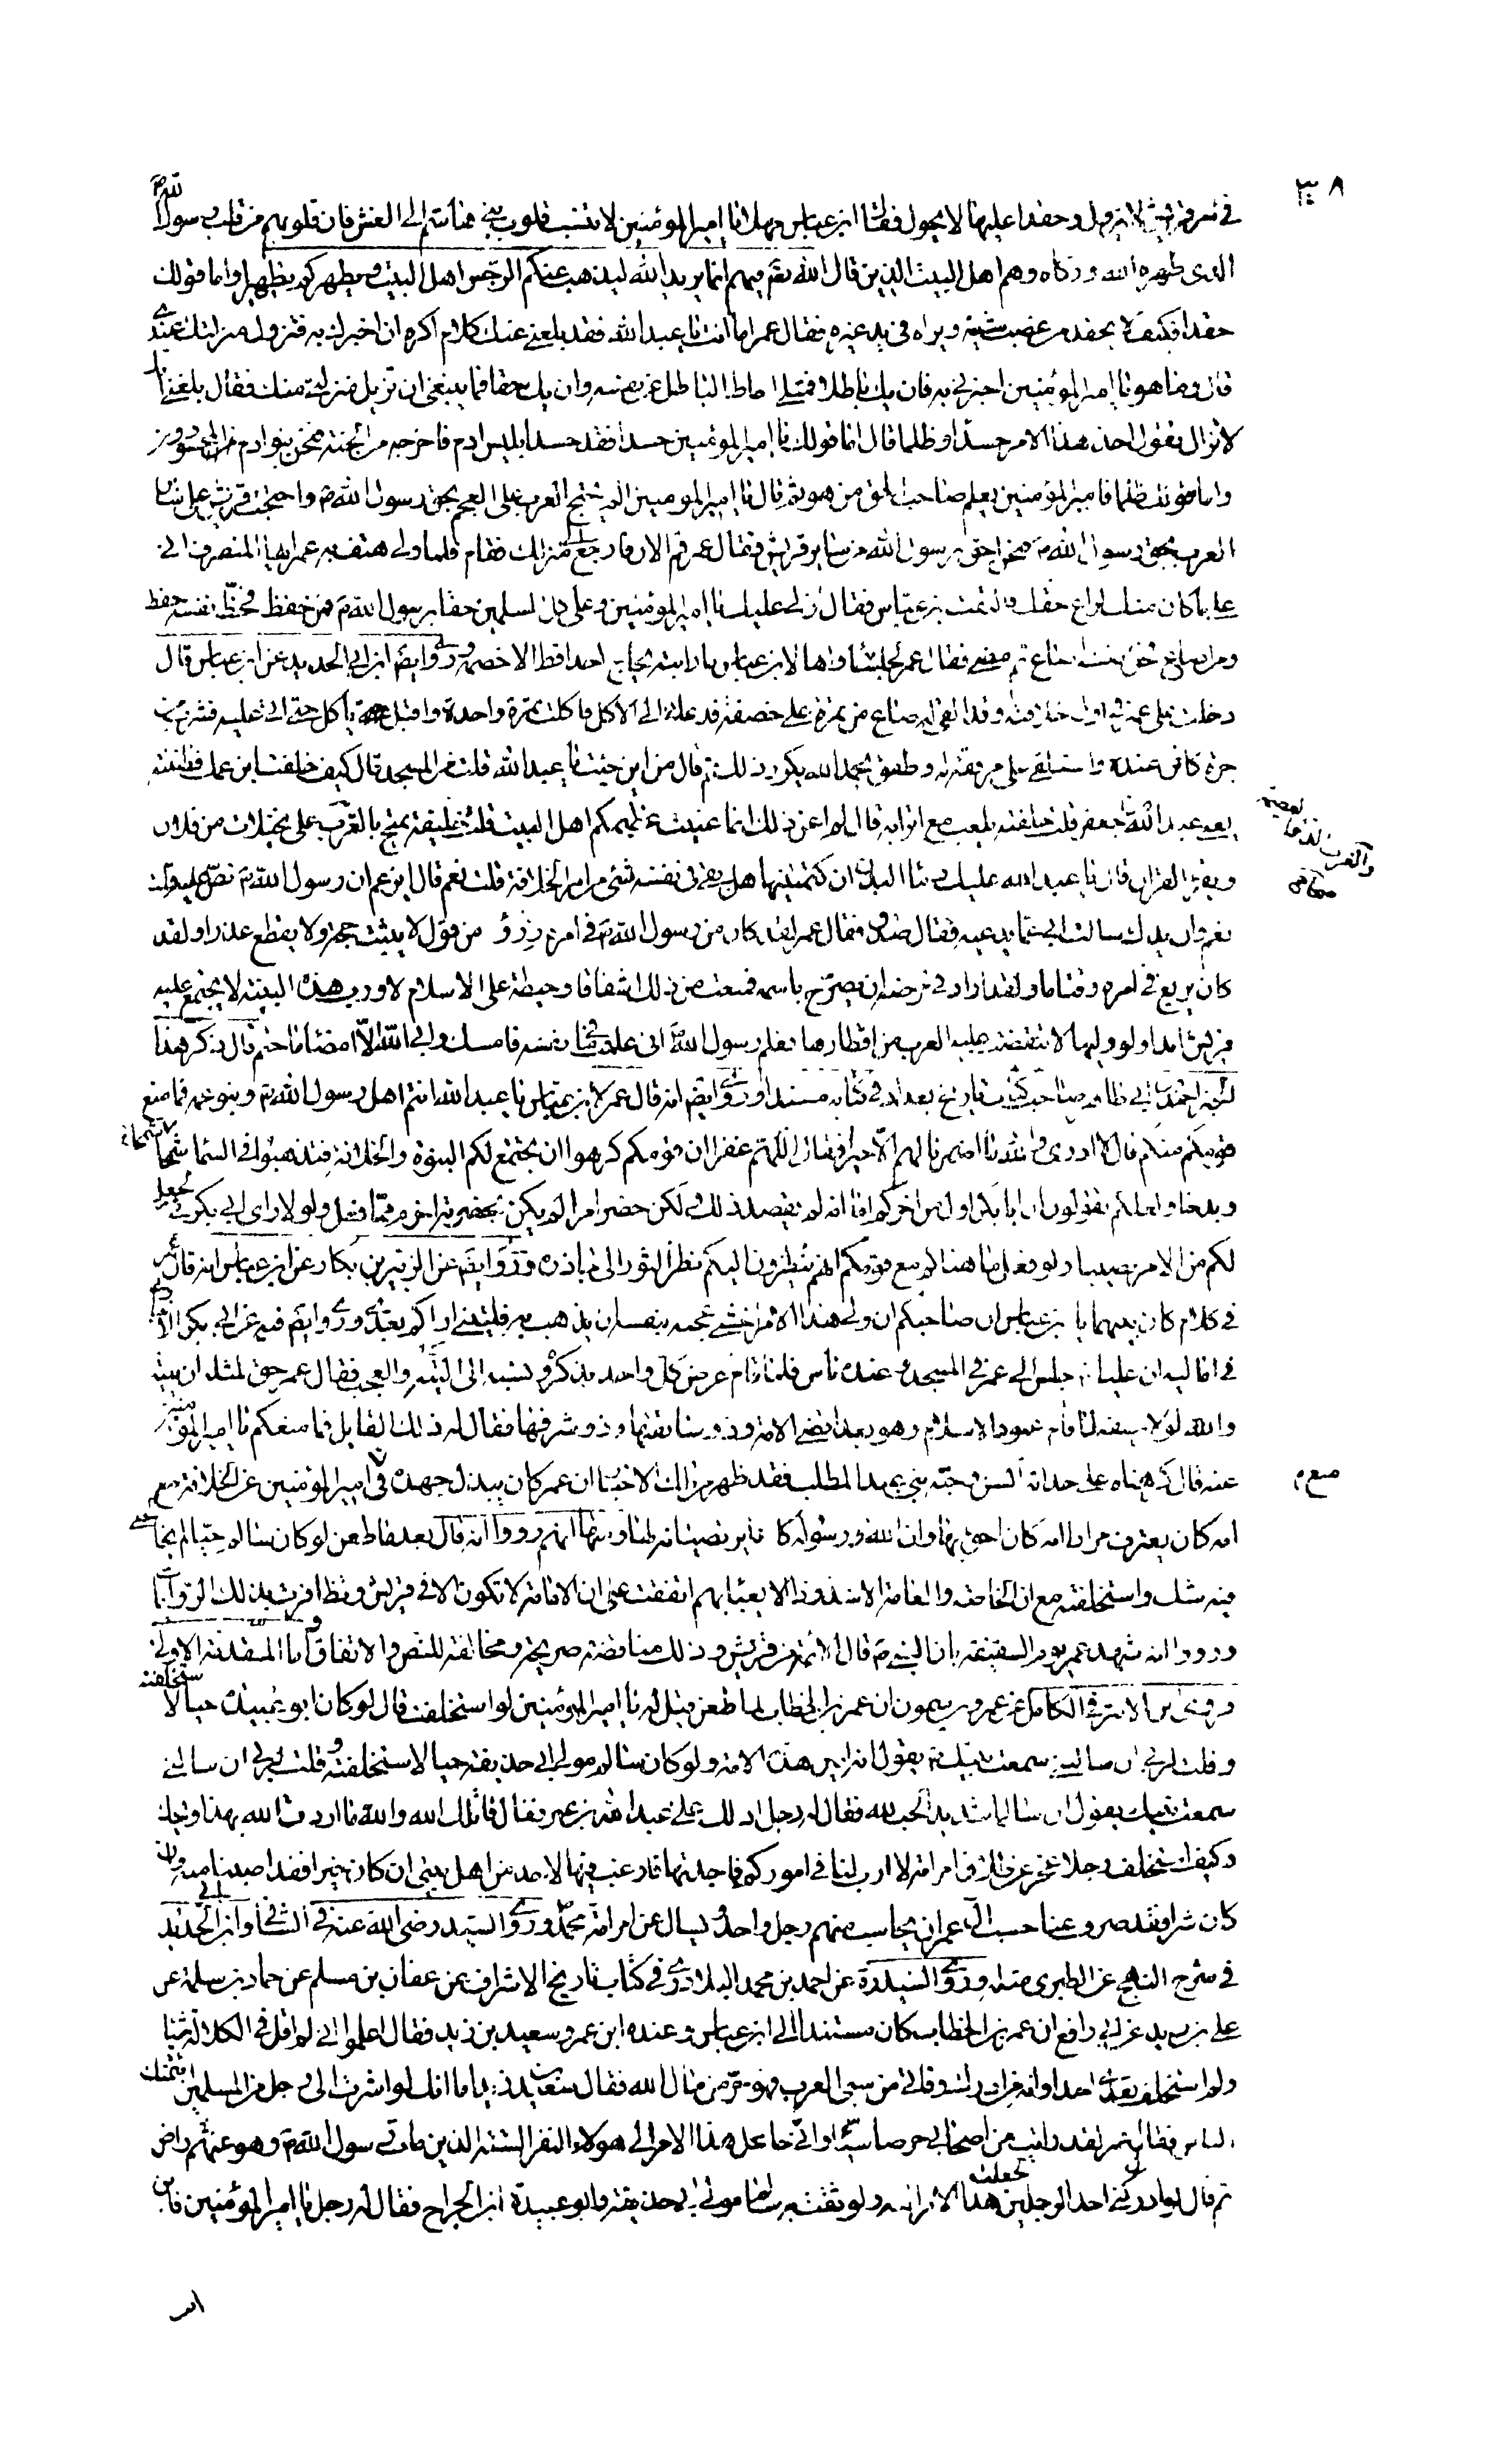 ٣٨
في امر قريش لا يزول وحقدا عليها لا يحول فقال ابن عباس مهلا يا امير المؤمنين لا تنسب قلوب بني هاشم الى الغش فان قلوبهم من قلب رسول الله ص
الذى طهره الله وزكاه وهم اهل البيت الذين قال الله تعم فيهم انما يريد الله ليذهب عنكم الرجس اهل البيت ويطهركم تطهيرا واما قولك
حقدا فكيف لا يحقد من غصب شيئه ويراه في يد غيره فقال عمر اما انت يا عبد الله فقد بلغني عنك كلام اكره ان اخبرك به فتزول منزلتك عندي
قال وما هو يا امير المؤمنين اخبرني به فان يك باطلا فمثلي اماط الباطل عن نفسه وان يك حقا فما ينبغي ان تزيل منزلتي منك فقال بلغني انك
لا تزال تقول اخذ هذا الامر حسدا وظلما قال اما قولك يا امير المؤمنين حسدا فقد حسد ابليس ادم فاخرجه من الجنة فنحن بنو ادم المحسودون
واما قولك ظلما فامير المؤمنين يعلم صاحب الحق من هو ثم قال يا امير المؤمنين الم يحتج العرب على العجم بحق رسول الله ص واحتجت قريش على سائر
العرب بحق رسول الله ص فنحن احق برسول الله من سائر قريش فقال عمر قم الان فارجع الى منزلك فقام فلما ولى هتف به عمر ايها المنصرف اني
على ما كان منك لراع حقك فالتفت ابن عباس فقال ان لي عليك يا امير المؤمنين وعلى كل المسلمين حقا برسول الله ص فمن حفظه فحظ نفسه حفظ
ومن اضاع فحق نفسه اضاع ثم مضى فقال عمر لجلسائه واها لابن عباس ما رايته يحاج احدا قط الا خصمه وروى ايضا ابن ابي الحديد عن ابن عباس قال
دخلت على عمر في اول خلافته وقد القي له صاع من تمر على خصفة فدعاني الى الاكل فاكلت تمرة واحدة واقبل ياكل حتى اتى عليه فشرب من
جر كان عنده واستلقى على مرفقة له وطفق يحمد الله يكرر ذلك ثم قال من اين جئت يا عبد الله قلت من المسجد قال كيف خلفت ابن عمك فظننته
يعني عبد الله بن جعفر قلت خلفته يلعب مع اترابه قال لم اعن ذلك انما عنيت عظيمكم اهل البيت قلت خلفته يمتح بالغرب على نخيلات من فلان
ويقرأ القران قال يا عبد الله عليك دماء البدن ان كتمتنيها هل بقي في نفسه شئ من امر الخلافة قلت نعم قال ايزعم ان رسول الله ص نص عليه قلت
نعم وازيدك سالت ابي عما يدعيه فقال صدق فقال عمر لقد كان من رسول الله ص في امره ذرو من قول لا يثبت حجة ولا يقطع عذرا ولقد
كان يربع في امره وقتا ما ولقد اراد في مرضه ان يصرح باسمه فمنعت من ذلك اشفاقا وحيطة على الاسلام لا ورب هذه البنية لا يجتمع عليه
قريش ابدا ولو وليها لانتقضت عليه العرب من اقطارها فعلم رسول الله ص اني علمت ما في نفسه فامسك وابى الله الا امضاء ما حتم قال ذكر هذا
الخبر احمد بن ابي طاهر صاحب كتاب تاريخ بغداد في كتابه مسندا وروى ايضا انه قال عمر لابن عباس يا عبد الله انتم اهل رسول الله ص وبنو عمه فما منع
قومكم منكم قال لا ادري والله ما اضمرنا لهم الا خيرا فقال اللهم غفرا ان قومكم كرهوا ان يجتمع لكم النبوة والخلافة فتذهبوا في السماء شمخا
وبذخا ولعلكم تقولون ان ابا بكر اول من اخركم اما انه لم يقصد ذلك ولكن حضر امر لم يكن بحضرته احزم مما فعل ولولا راي ابي بكر في لجعل
لكم من الامر نصيبا ولو فعل ما هنأكم مع قومكم انهم ينظرون اليكم نظر الثور الى جاذره وروى ايضا عن الزبير بن بكار عن ابن عباس انه قال عمر
في كلام كان بينهما يا ابن عباس ان صاحبكم ان ولى هذا الامر اخشى عجبه بنفسه ان يذهب به فليتني اراكم بعدي وروى ايضا فيه عن ابي بكر الانباري
في اماليه ان عليا ع جلس الى عمر في المسجد وعنده ناس فلما قام عرض كل واحد بذكره ونسبه الى التيه والعجب فقال عمر حق لمثله ان يتيه
والله لولا سيفه لما قام عمود الاسلام وهو بعد اقضى الامة وذو سابقتها وذو شرفها فقال له ذلك القايل فما منعكم يا امير المؤمنين
عنه قال كرهناه على حداثة السن وحبه بني عبد المطلب فقد ظهر من تلك الاخبار ان عمر كان يبذل جهده في منع امير المؤمنين عن الخلافة مع
انه كان يعترف مرارا انه كان احق بها وان الله ورسوله كانا يرتضيانه لها ومنها انهم رووا انه قال بعد ما طعن لو كان سالم حيا لم يخالجني
فيه شك واستخلفته مع ان الخاصة والعامة الا شذوذا لا يعبأ بهم اتفقت على ان الامامة لا تكون الا في قريش وتظافرت بذلك الروايات
ورووا انه شهد عمر يوم السقيفة بان النبي ص قال الائمة من قريش وذلك مناقضة صريحة ومخالفة للنص والاتفاق واما المقدمة الاولى
فروى ابن الاثير في الكامل عن عمرو بن ميمون ان عمر بن الخطاب لما طعن قيل له يا امير المؤمنين لو استخلفت قال لو كان ابو عبيدة حيا لاستخلفته
وقلت لربي ان سالني سمعت نبيك ص يقول انه امين هذه الامة ولو كان سالم مولى ابي حذيفة حيا لاستخلفته وقلت لربي ان سالني
سمعت نبيك يقول ان سالما شديد الحب لله فقال له رجل ادلك على عبد الله بن عمر فقال قاتلك الله والله ما اردت الله بهذا ويحك
وكيف استخلف رجلا عجز عن طلاق امراته لا ارب لنا في اموركم فما حمدتها فارغب فيها لاحد من اهل بيتي ان كان خيرا فقد اصبنا منه وان
كان شرا فقد صرف عنا حسب ال عمر ان يحاسب منهم رجل واحد ويسال عن امر امة محمد ص وروى السيد رضي الله عنه في الشافي وابن ابي الحديد
في شرح النهج عن الطبرى مثله وروى السيد ره عن احمد بن محمد البلاذرى في كتاب تاريخ الاشراف عن عفان بن مسلم عن حماد بن سلمة عن
علي بن زيد عن ابي رافع ان عمر بن الخطاب كان مستندا الى ابن عباس وعنده ابن عمر وسعيد بن زيد فقال اعلموا اني لم اقل في الكلالة شيئا
ولم استخلف بعدي احدا وانه من ادرك وفاتي من سبى العرب فهو حر من مال الله فقال سعيد بن زيد اما انك لو اشرت الى رجل من المسلمين ائتمنك
الناس فقال عمر لقد رايت من اصحابي حرصا سيئا واني جاعل هذا الامر الى هؤلاء النفر الستة الذين مات رسول الله ص وهو عنهم راض
ثم قال لو ادركني احد الرجلين لجعلت هذا الامر اليه ولوثقت به سالم مولى ابي حذيفة وابو عبيدة ابن الجراح فقال له رجل يا امير المؤمنين فاين